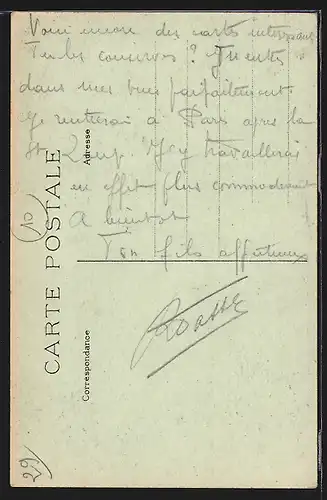 Voici encore des cartes intéressantes
Tu les conserves ? Tu entres
dans mes vues parfaitement
Je rentrerai à Paris après la
St J'y travaillerai
en effet plus commodément
A bientôt
Ton fils affectueux
CARTE POSTALE
Adresse
Correspondance
(10)
29